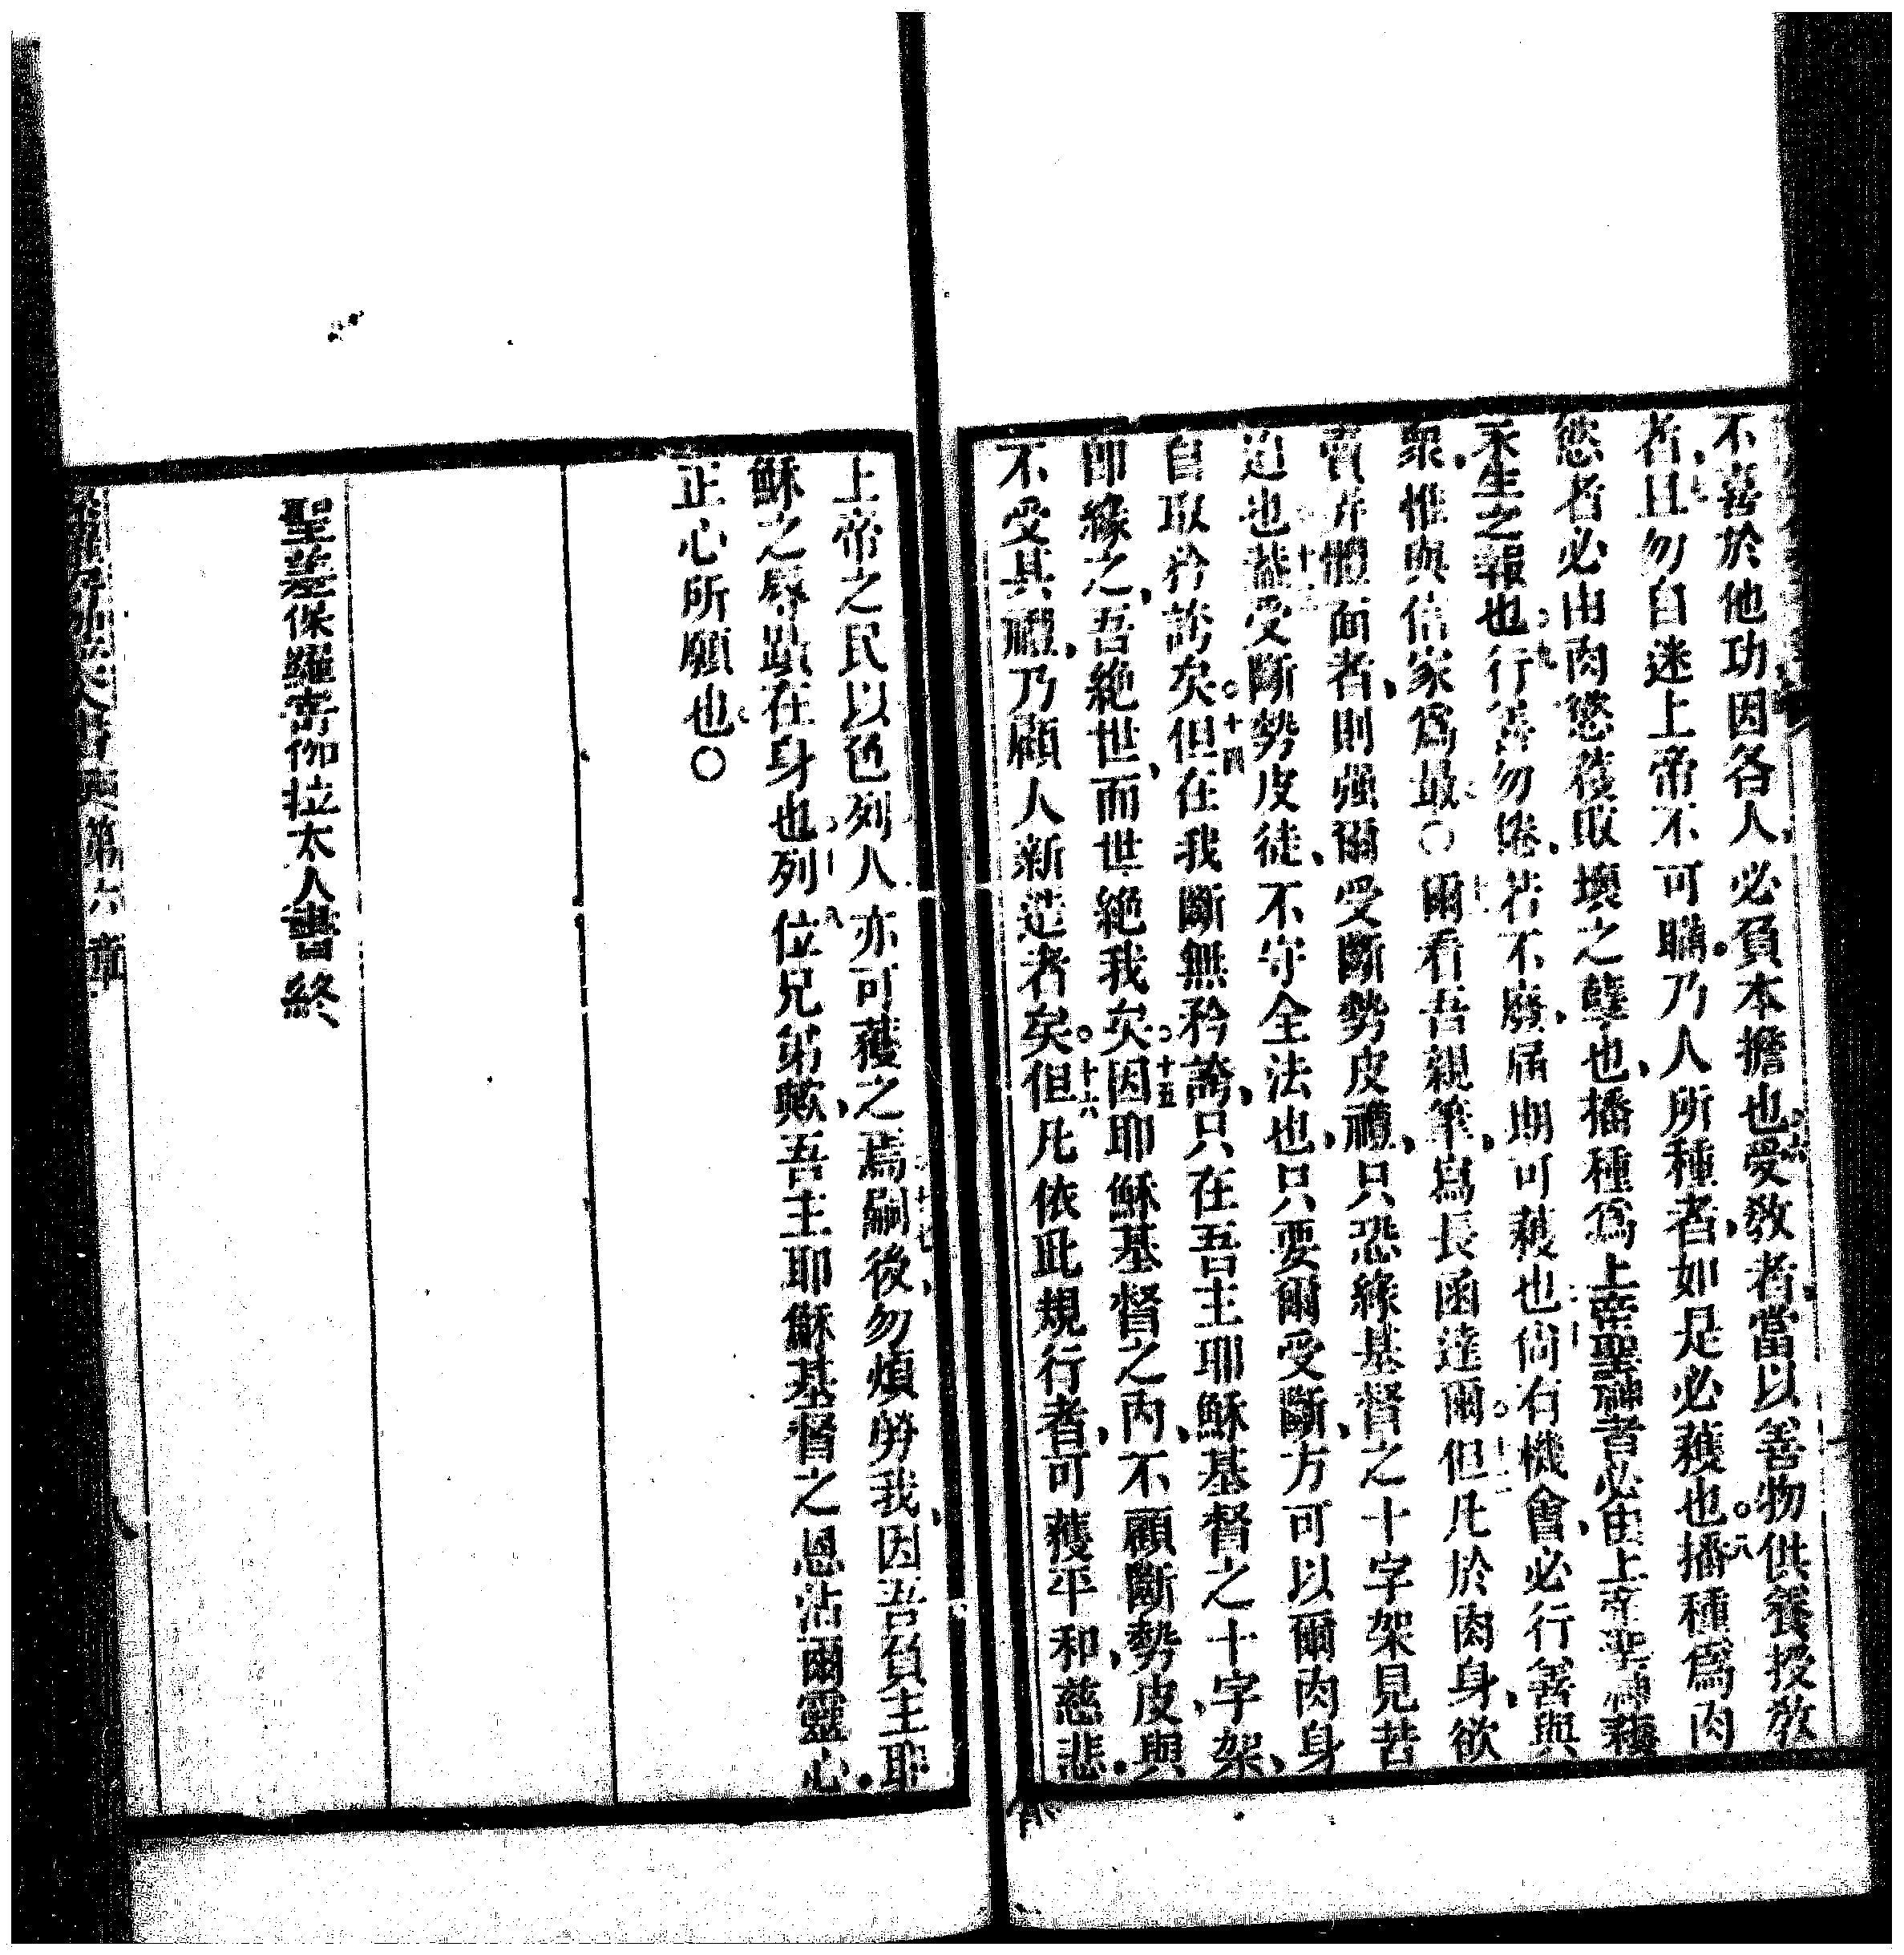 不喜於他功因各人必負本擔也受敎者當以善物供養授敎
者且勿自迷上帝不可瞞乃人所種者如是必穫也播種爲肉
慾者必由肉慾穫敗壞之孽也播種爲上帝聖神者必由上帝聖神穫
永生之報也行善勿倦若不廢届期可穫也尙有機會必行善與
衆惟與信家爲最〇爾看吾親筆寫長函達爾但凡於肉身欲
賣弄體面者則强爾受斷勢皮禮只恐緣基督之十字架見苦
迫也葢受斷勢皮徒不守全法也只要爾受斷方可以爾肉身
自取矜誇矣十四但在我斷無矜誇只在吾主耶穌基督之十字架
卽緣之吾絶世而世絶我矣十五因耶穌基督之内不顧斷勢皮與
不受其禮乃顧人新造者矣十六但凡依此規行者可獲平和慈悲
上帝之民以色列人亦可獲之焉十七嗣後勿煩勞我因吾負主耶
穌之辱蹟在身也十八列位兄弟歟吾主耶穌基督之恩沾爾靈心
正心所願也〇
聖差保羅寄伽拉太人書終
第六章